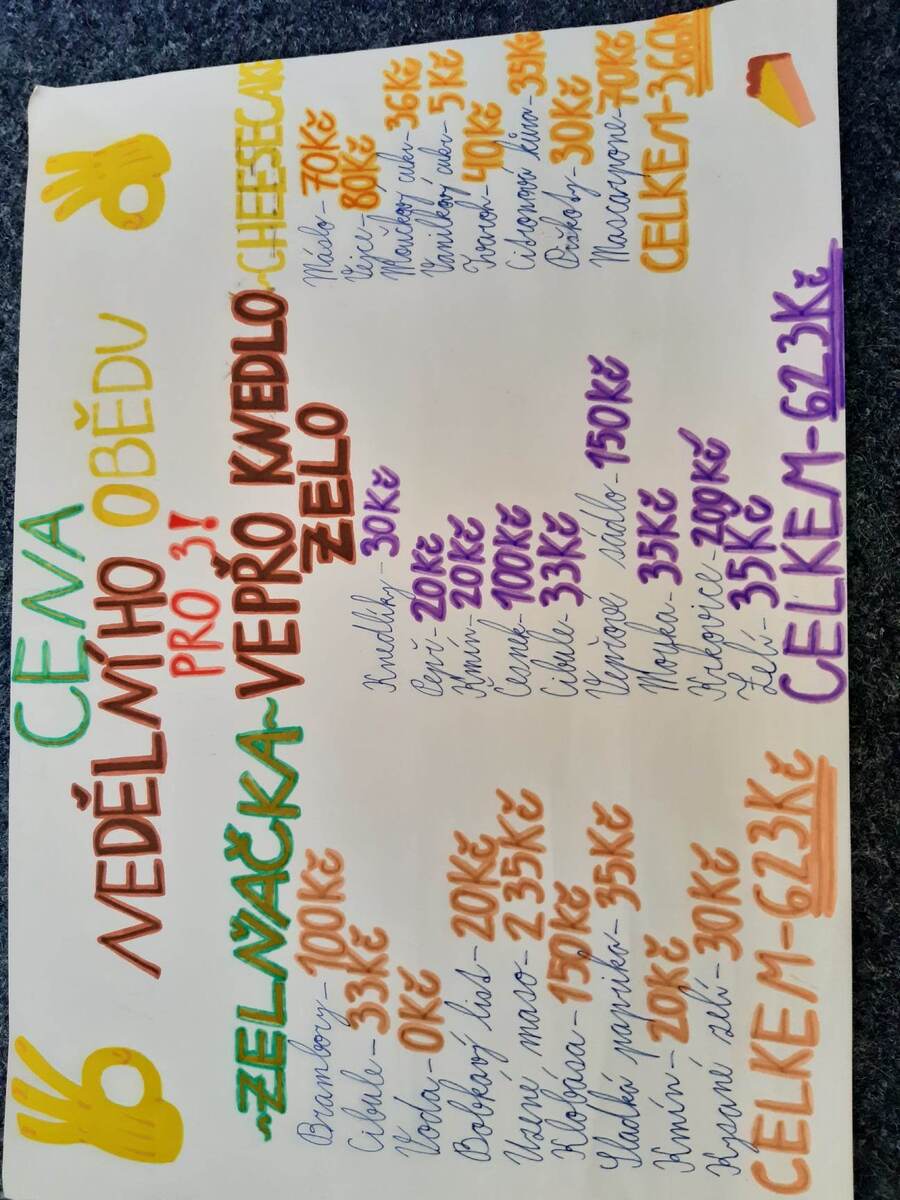 CENA
NEDĚLNÍHO OBĚDU
PRO 3!
~ZELŇAČKA~
Brambory-100Kč
Cibule-33Kč
Voda-0Kč
Bobkový list-20Kč
Uzené maso-235Kč
Klobása-150Kč
Sladká paprika-35Kč
Kmín-20Kč
Kysané zelí-30Kč
CELKEM-623Kč
VEPŘO KNEDLO
ZELO
Knedlíky-30Kč
Pepř-20Kč
Kmín-20Kč
Česnek-100Kč
Cibule-33Kč
Vepřové sádlo-150Kč
Mouka-35Kč
Krkovice-209Kč
Zelí-35Kč
CELKEM-623Kč
~CHEESECAKE
Máslo-70Kč
Vejce-80Kč
Moučkový cukr-36Kč
Vanilkový cukr-5Kč
Tvaroh-40Kč
Citronová kůra-35Kč
Piškoty-30Kč
Mascarpone-70Kč
CELKEM-366Kč